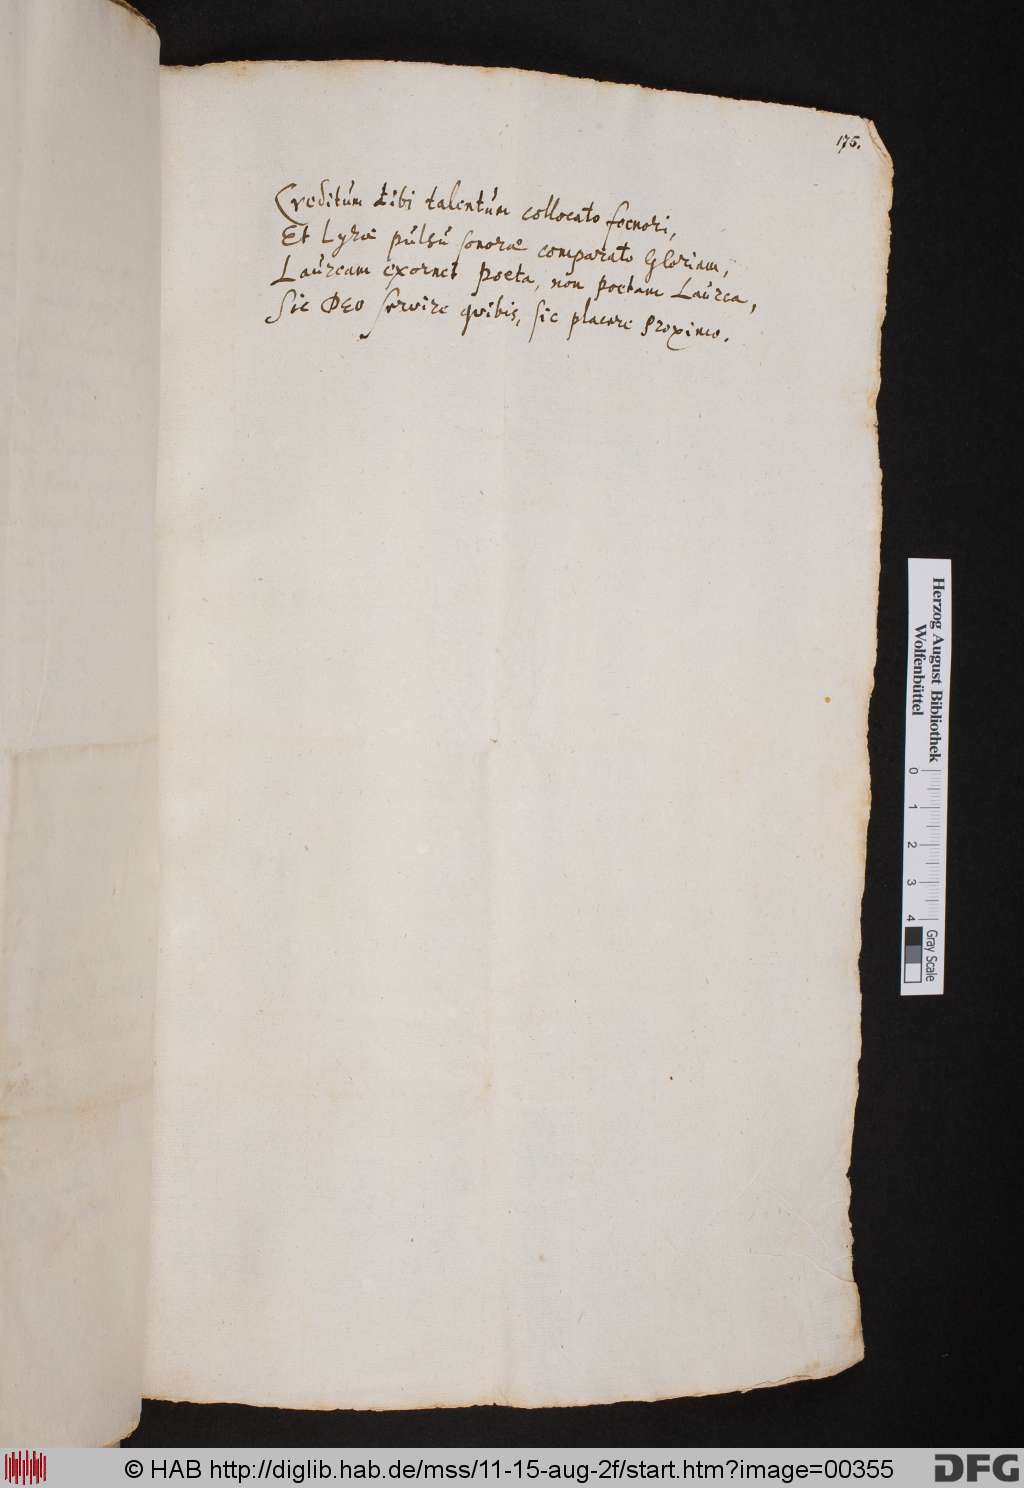 175.
Creditum tibi talentum collocato foenori,
Et Lyrae pulsu sonorae comparato Gloriam,
Lauream exornet poeta, non poetam Laurea,
Sic DEO servire quibis, sic placere proximo.
Herzog August Bibliothek
Wolfenbüttel
0 1 2 3 4
Gray Scale
© HAB http://diglib.hab.de/mss/11-15-aug-2f/start.htm?image=00355
DFG